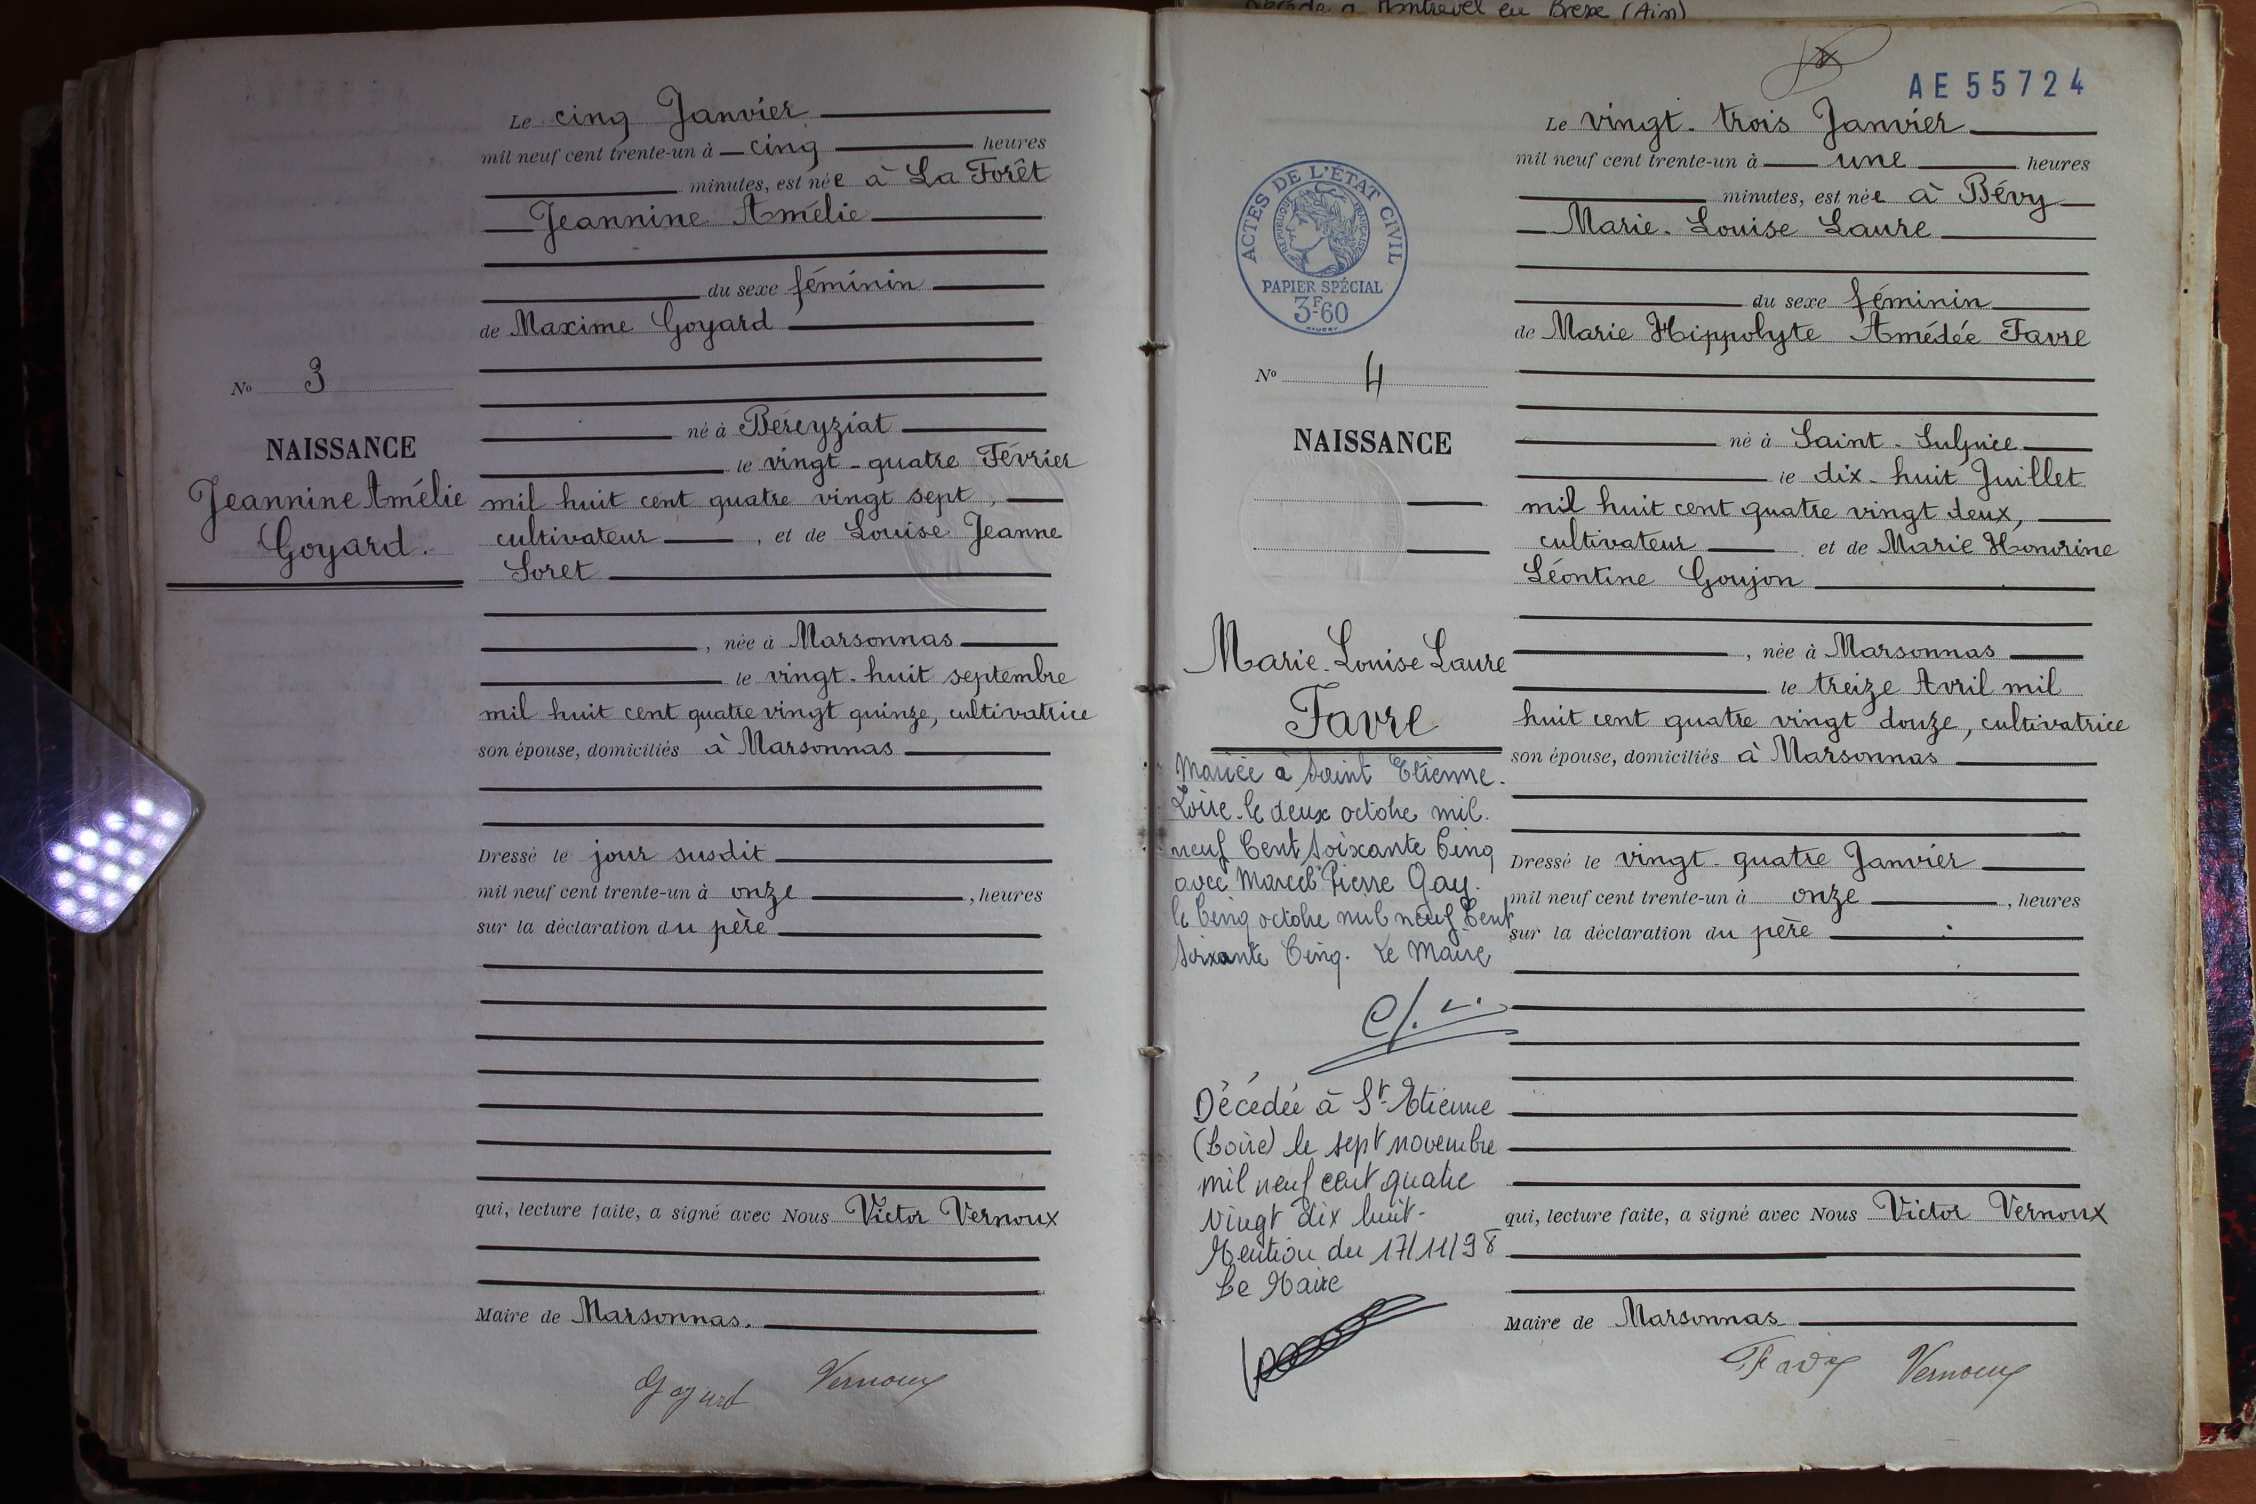 Montrevel en Bresse (Ain)
Le cinq Janvier
mil neuf cent trente-un à cinq heures
minutes, est née à La Forêt
Jeannine Amélie
du sexe féminin
de Maxime Goyard
No 3
né à Béreyziat
NAISSANCE
le vingt-quatre Février
Jeannine Amélie
Goyard.
mil huit cent quatre vingt sept,
cultivateur, et de Louise Jeanne
Loret
, née à Marsonnas
le vingt-huit septembre
mil huit cent quatre vingt quinze, cultivatrice
son épouse, domiciliés à Marsonnas
Dressé le jour susdit
mil neuf cent trente-un à onze, heures
sur la déclaration du père
qui, lecture faite, a signé avec Nous Victor Vernoux
Maire de Marsonnas.
Goyard Vernoux
AE 55724
ACTES DE L'ÉTAT CIVIL
RÉPUBLIQUE FRANÇAISE
PAPIER SPÉCIAL
3F60
Le vingt-trois Janvier
mil neuf cent trente-un à une heures
minutes, est née à Bévy
Marie-Louise Laure
du sexe féminin
de Marie Hippolyte Amédée Favre
No 4
NAISSANCE
né à Saint-Sulpice
le dix-huit Juillet
mil huit cent quatre vingt deux,
cultivateur et de Marie Honorine
Léontine Goujon
, née à Marsonnas
le treize Avril mil
huit cent quatre vingt douze, cultivatrice
son épouse, domiciliés à Marsonnas
Dressé le vingt-quatre Janvier
mil neuf cent trente-un à onze, heures
sur la déclaration du père
qui, lecture faite, a signé avec Nous Victor Vernoux
Maire de Marsonnas
Favre Vernoux
Marie-Louise Laure
Favre
Mariée à Saint Etienne.
Loire. le deux octobre mil.
neuf Cent Soixante Cinq
avec Marcel Pierre Gay.
le Cinq octobre mil neuf Cent
Soixante Cinq. Le Maire
Décédée à St-Etienne
(Loire) le sept novembre
mil neuf cent quatre
vingt dix huit-
Mention du 17/11/98
Le Maire